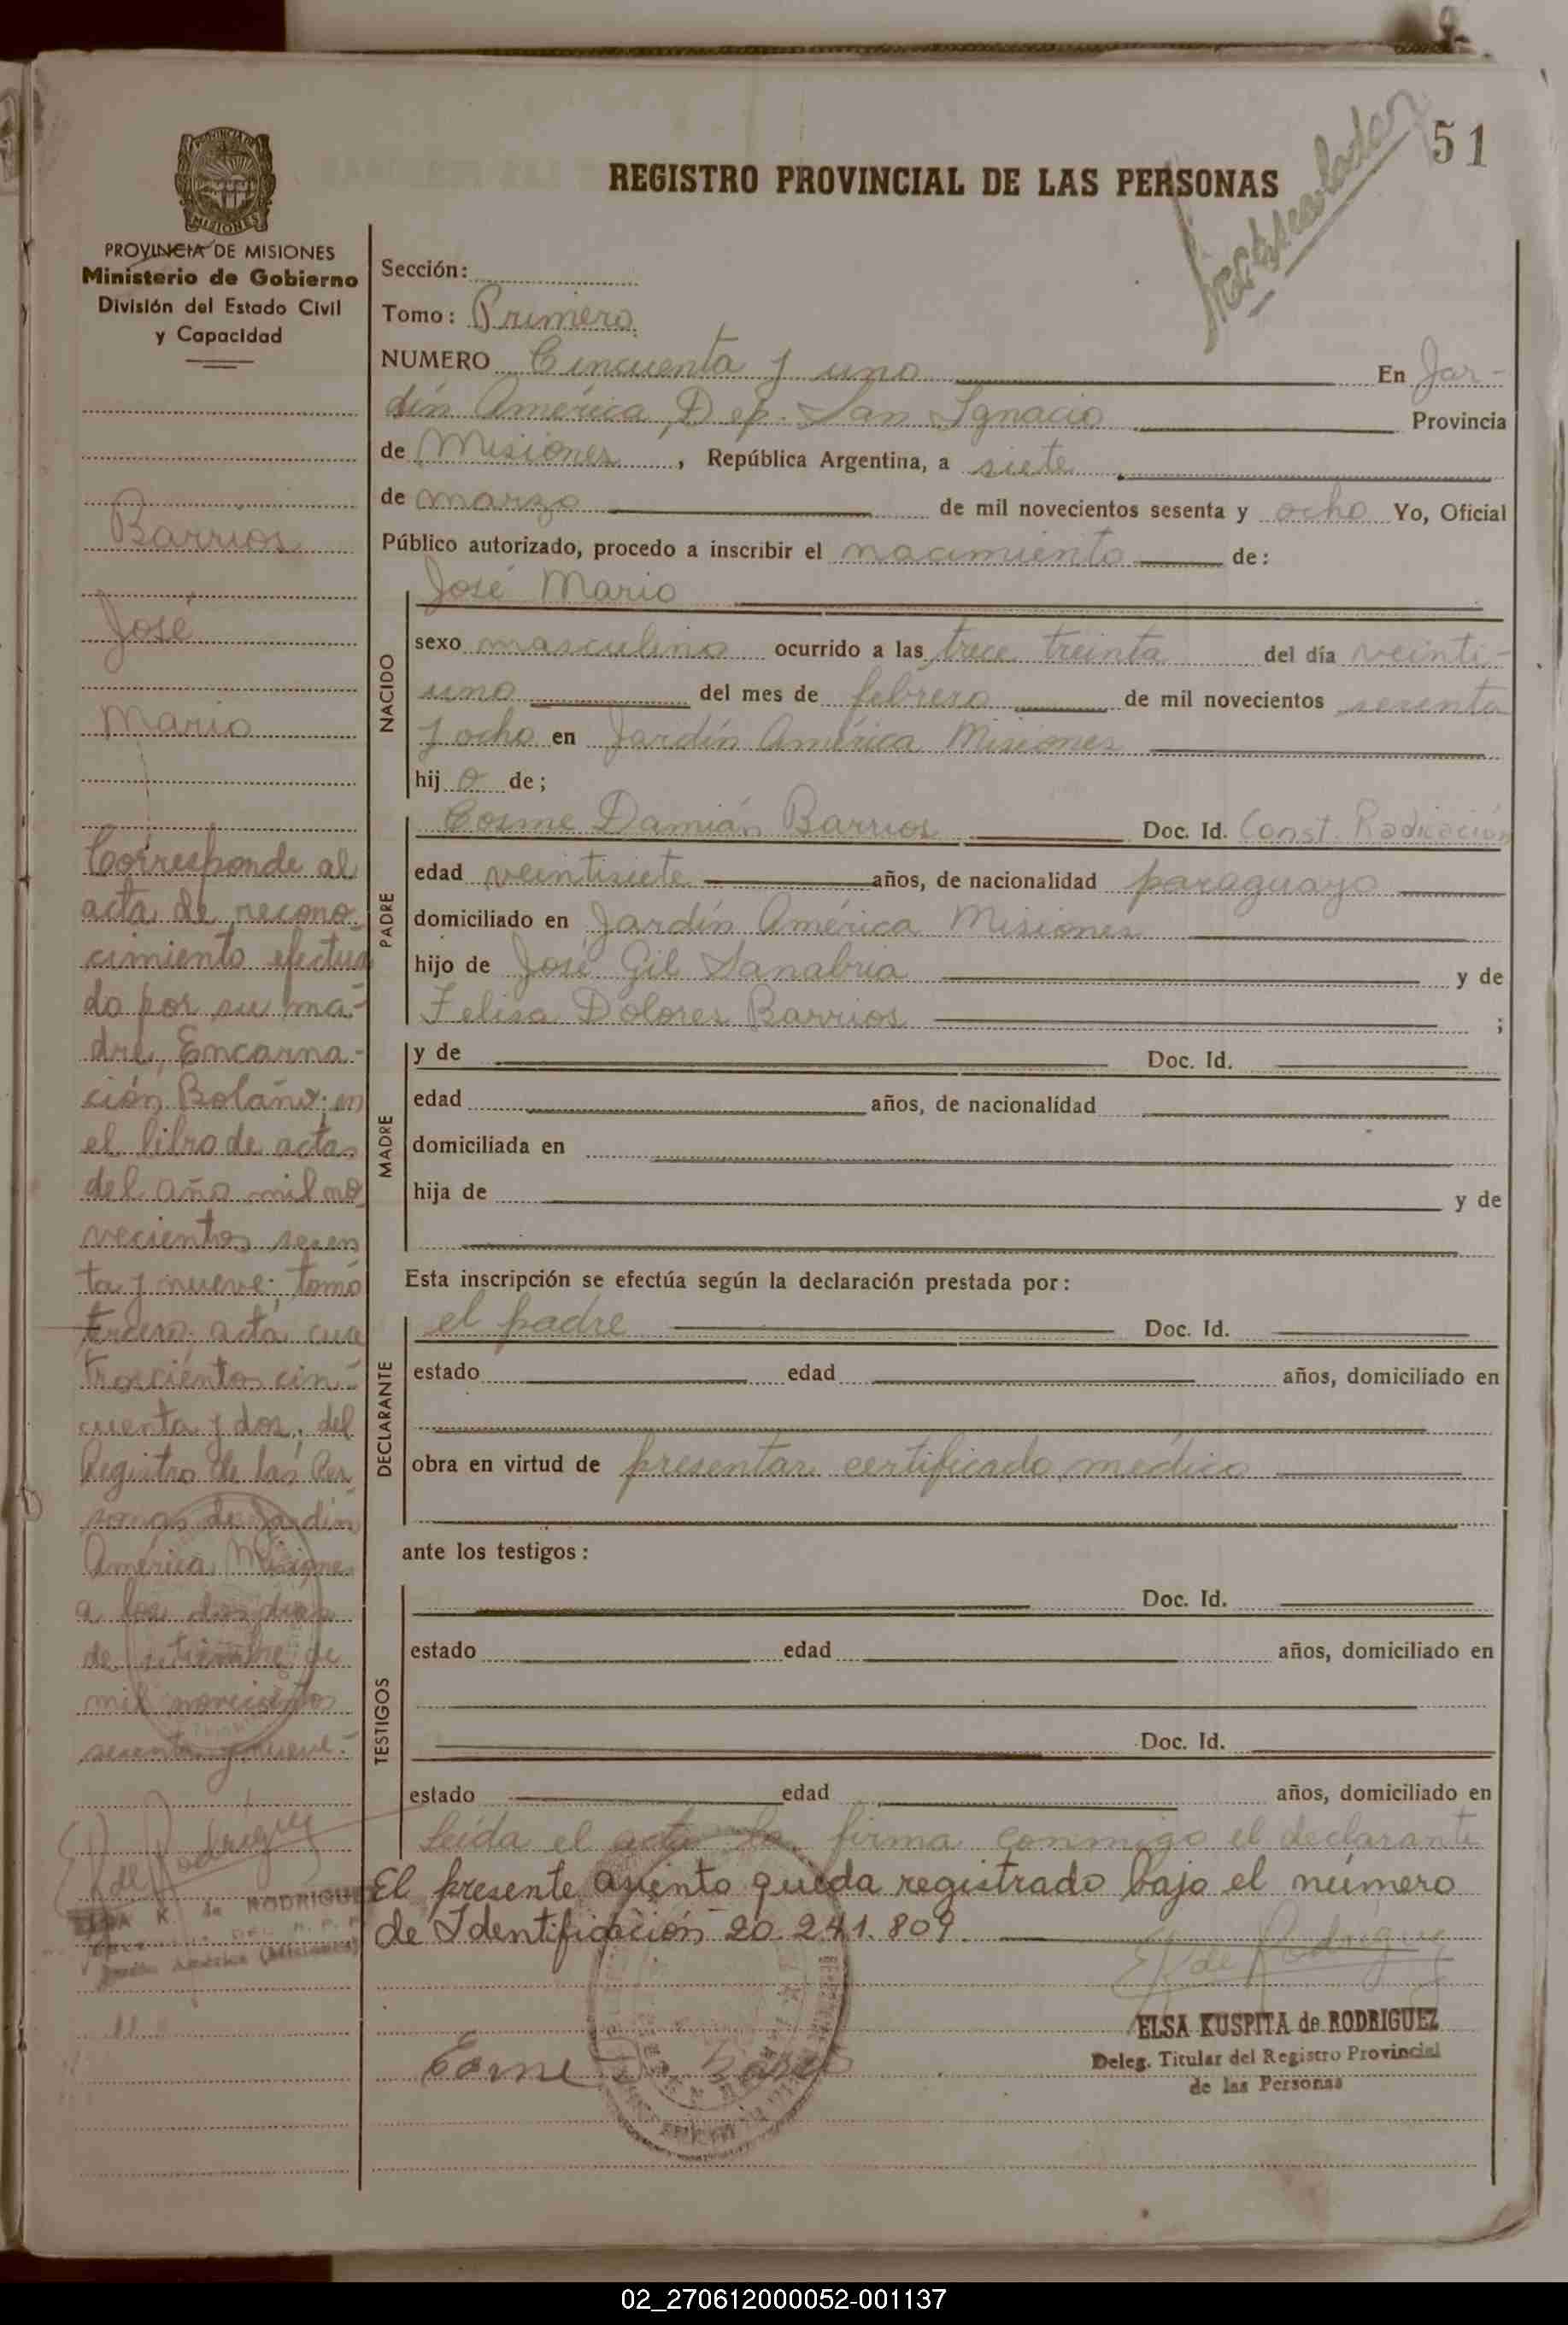 51
REGISTRO PROVINCIAL DE LAS PERSONAS
PROVINCIA DE MISIONES
Ministerio de Gobierno
División del Estado Civil
y Capacidad
Barrios
José
Mario
Corresponde al
acta de recono
cimiento efectua
do por su ma-
dre, Encarna-
ción Bolaño; en
el libro de actas
del año mil no
vecientos sesen
ta y nueve; tomo
tercero, acta cua
troscientos cin-
cuenta y dos, del
Registro de las Per
sonas de Jardín
América, Misiones
a los dos días
de setiembre de
mil novecientos
sesenta y nueve.-
E K de Rodríguez
ELSA K. de RODRIGUEZ
Jardín América (Misiones)
Sección:
Tomo: Primero
NUMERO Cincuenta y uno En Jar-
dín América, Dep. San Ignacio Provincia
de Misiones, República Argentina, a siete
de marzo de mil novecientos sesenta y ocho Yo, Oficial
Público autorizado, procedo a inscribir el nacimiento de:
NACIDO
José Mario
sexo masculino ocurrido a las trece treinta del día veinti-
uno del mes de febrero de mil novecientos sesenta
y ocho en Jardín América Misiones
hij o de;
PADRE
Cosme Damián Barrios Doc. Id. Const. Radicación
edad veintisiete años, de nacionalidad paraguayo
domiciliado en Jardín América Misiones
hijo de José Gil Sanabria y de
Felisa Dolores Barrios ;
MADRE
y de Doc. Id.
edad años, de nacionalidad
domiciliada en
hija de y de
Esta inscripción se efectúa según la declaración prestada por:
DECLARANTE
el padre Doc. Id.
estado edad años, domiciliado en
obra en virtud de presentar certificado médico
ante los testigos:
TESTIGOS
Doc. Id.
estado edad años, domiciliado en
Doc. Id.
estado edad años, domiciliado en
Leída el acta la firma conmigo el declarante
El presente asiento queda registrado bajo el número
de Identificación 20.241.809.
E K de Rodríguez
ELSA KUSPITA de RODRIGUEZ
Deleg. Titular del Registro Provincial
de las Personas
02_270612000052-001137